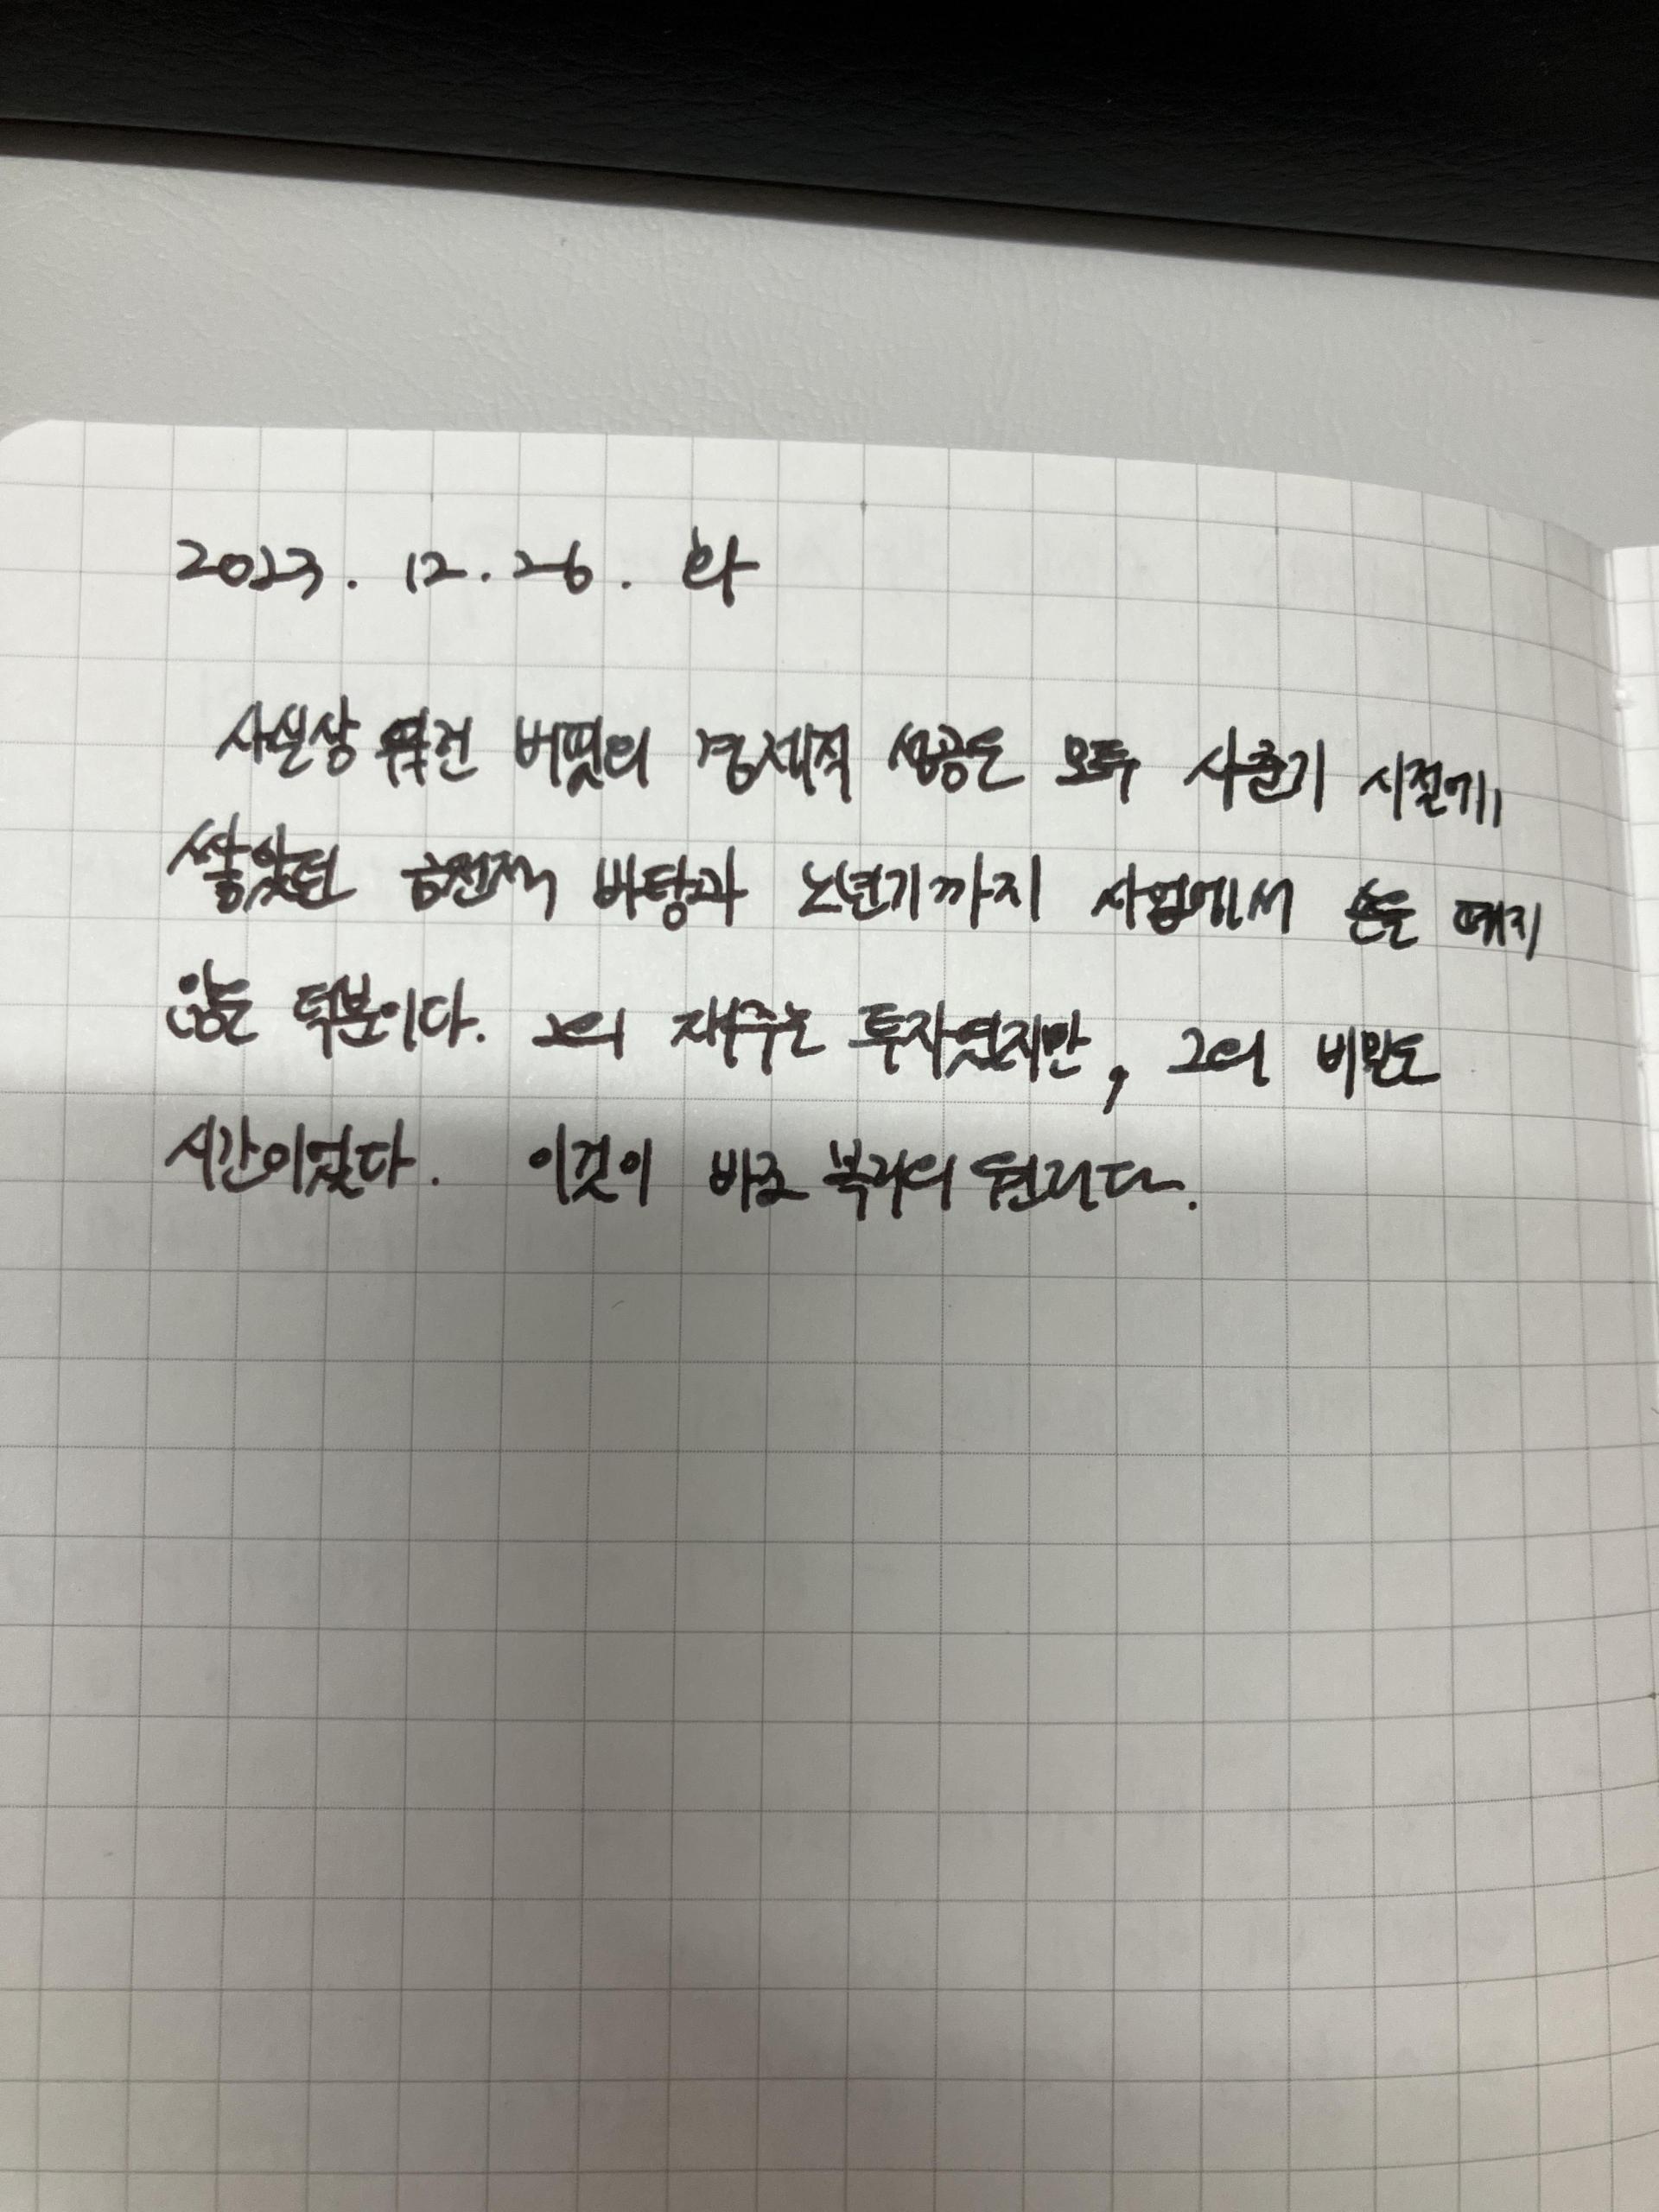 2023. 12. 26. 화
사실상 워런 버핏의 경제적 성공은 모두 사춘기 시절에
쌓았던 금전적 바탕과 노년기까지 사업에서 손을 떼지
않은 덕분이다. 그의 재주는 투자였지만, 그의 비밀은
시간이었다. 이것이 바로 복리의 원리다.